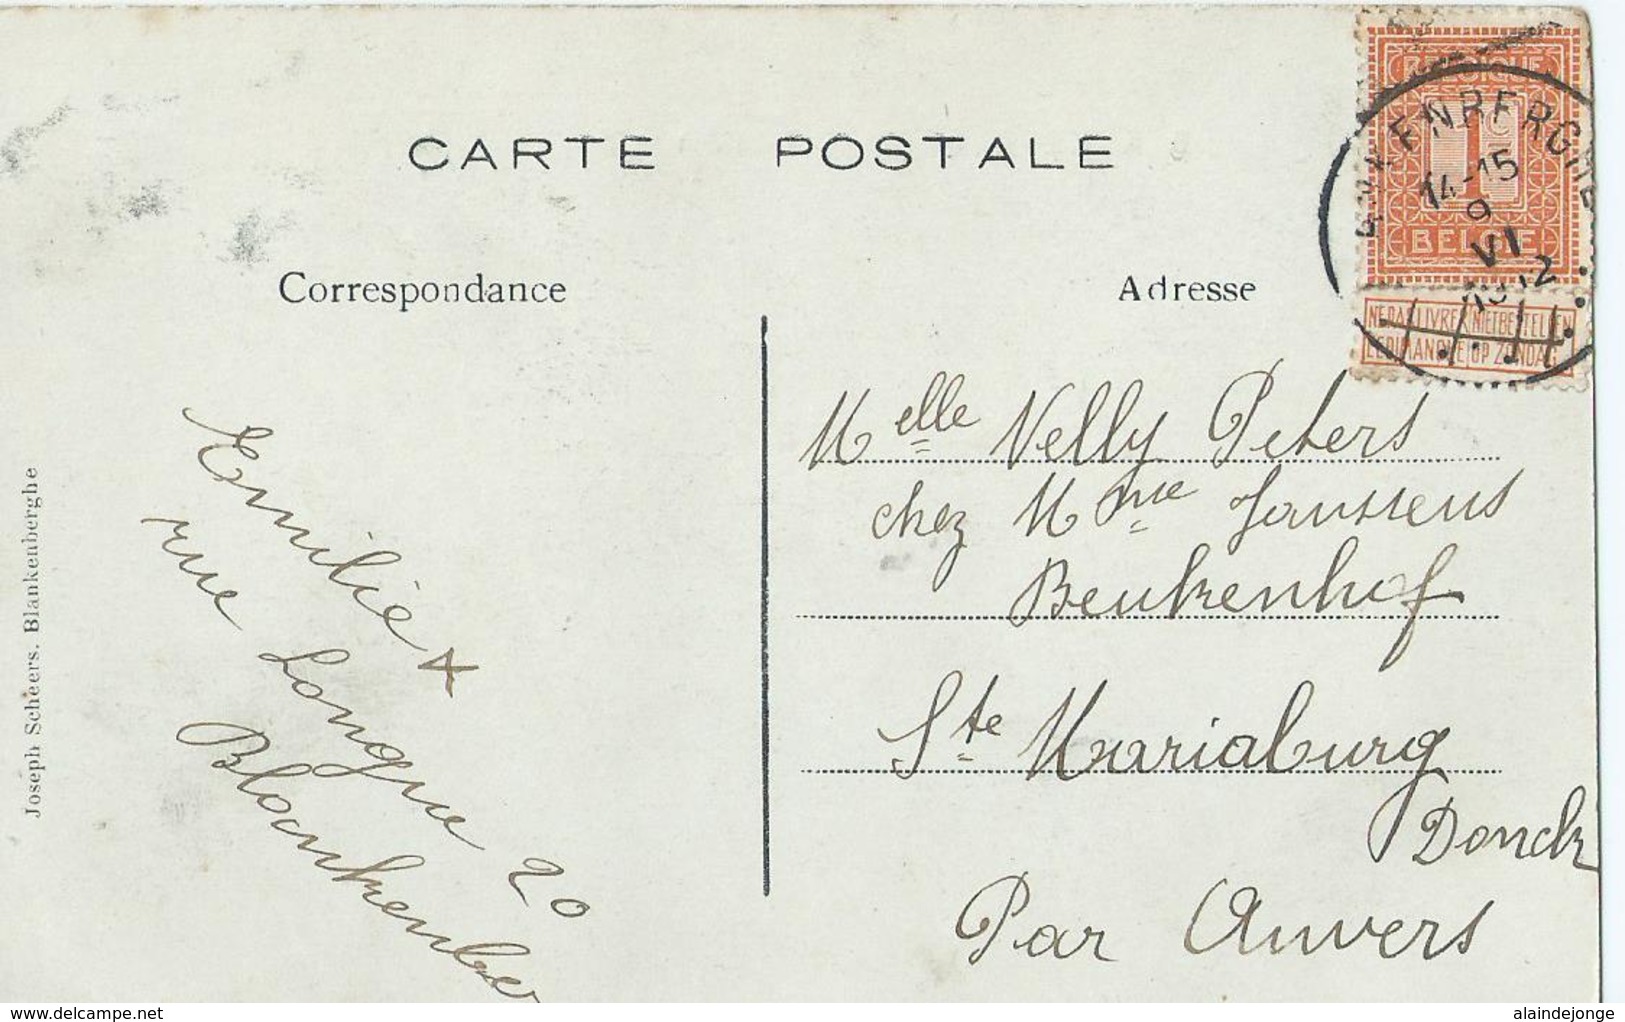 CARTE POSTALE
Correspondance
Adresse
BELGIQUE
1c
BELGIË
NE PAS LIVRER NIET BESTELLEN
LE DIMANCHE OP ZONDAG
14-15
9
VI
Joseph Scheers. Blankenberghe
Emilie
rue Longue 20
Blankenber
Melle Nelly Peters
chez Mme Janssens
Beukenhof
Ste Mariaburg
Donck
Par Anvers
www.delcampe.net
alaindejonge